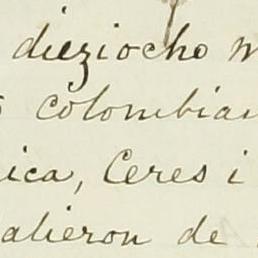 dieziocho m
colombian
ica, Ceres i
alieron de